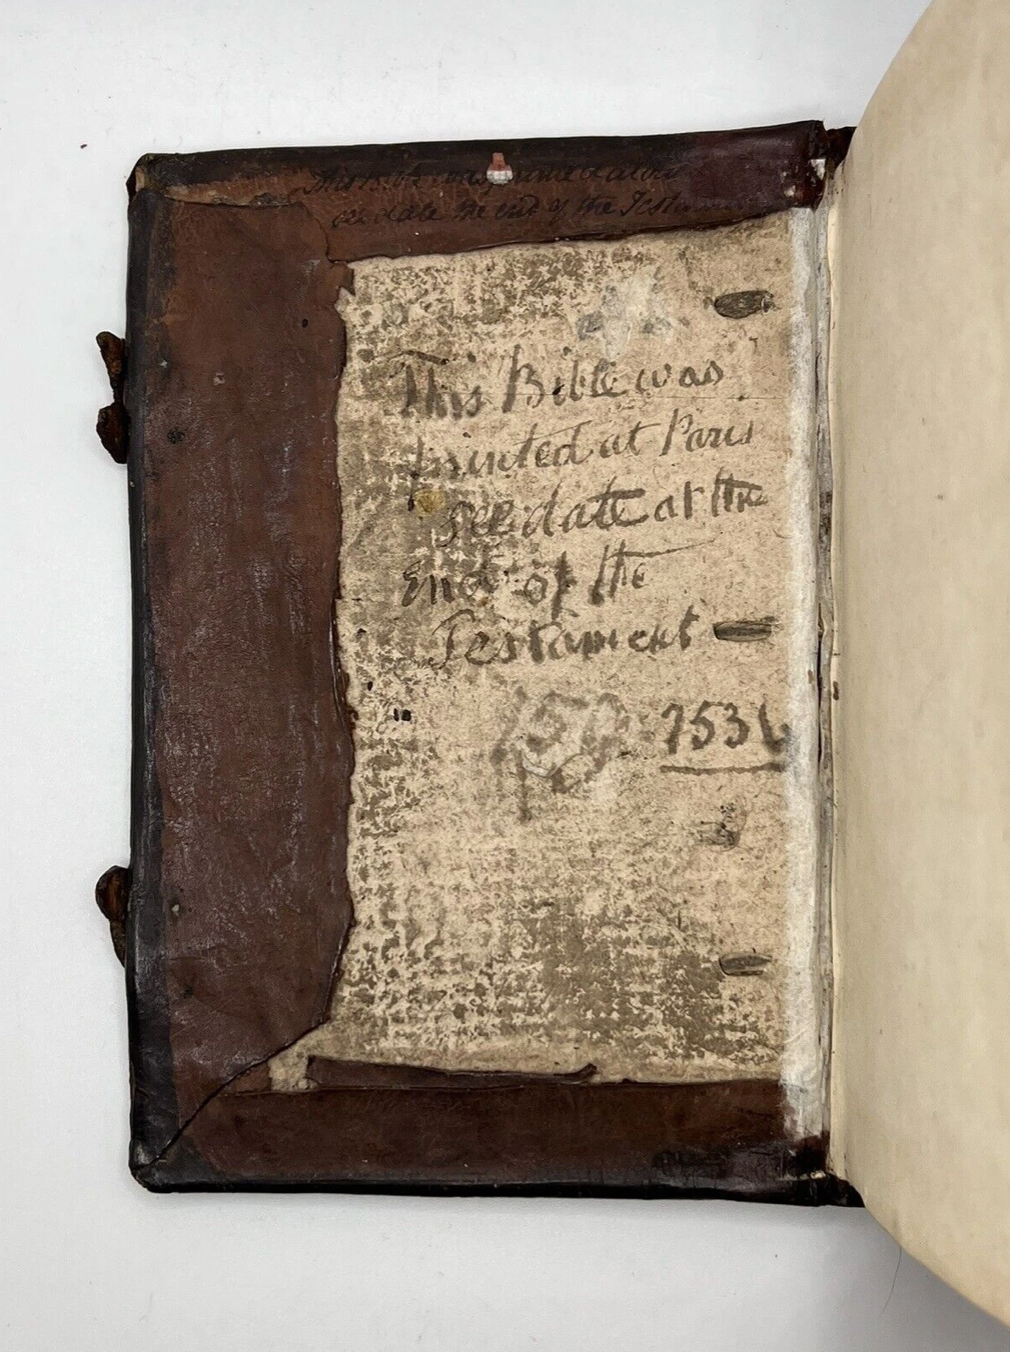 This Bible was printed at
see date the end of the Testament
This Bible was
printed at Paris
see date at the
End of the
Testament
1536